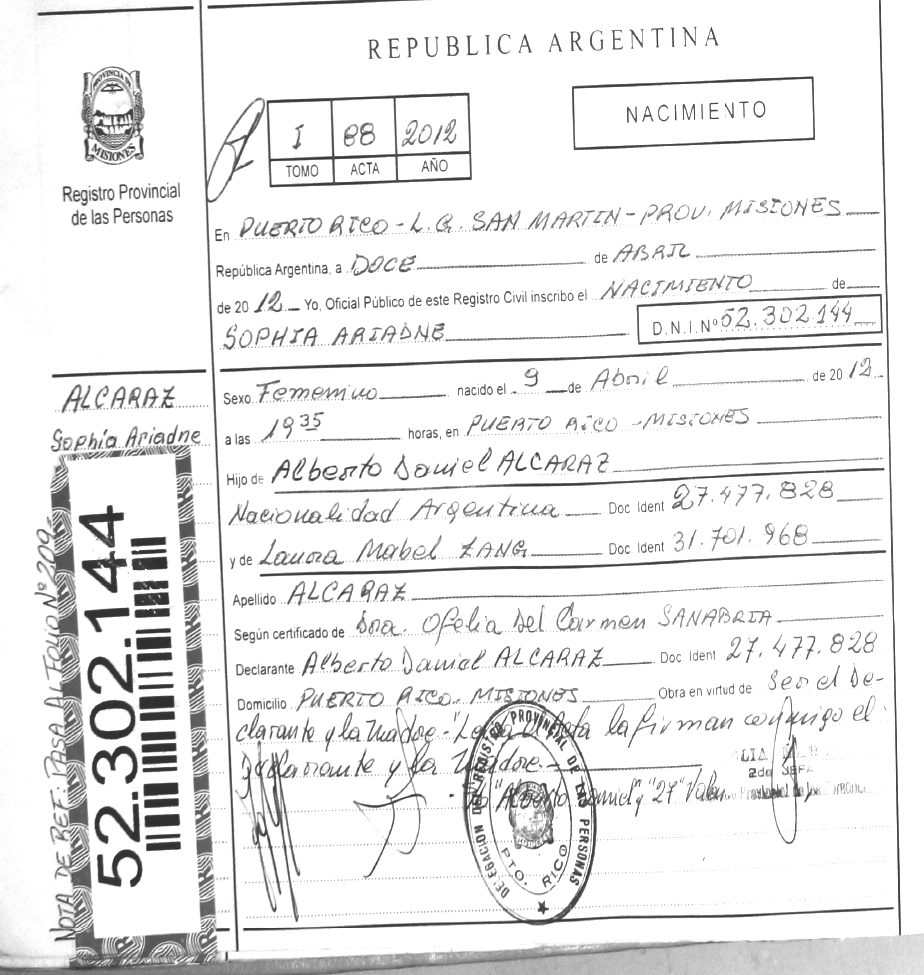 REPUBLICA ARGENTINA
PROVINCIA DE
MISIONES
Registro Provincial
de las Personas
I 88 2012
TOMO ACTA AÑO
NACIMIENTO
En PUERTO RICO - L. G. SAN MARTIN - PROV. MISIONES
República Argentina, a DOCE de ABRIL
de 2012 Yo, Oficial Público de este Registro Civil inscribo el NACIMIENTO de
SOPHIA ARIADNE D.N.I.Nº 52.302.144
ALCARAZ
Sophia Ariadne
Sexo Femenino nacido el 9 de Abril de 2012
a las 19 35 horas, en PUERTO RICO - MISIONES
Hijo de Alberto Daniel ALCARAZ
Nacionalidad Argentina Doc Ident 27.477.828
y de Laura Mabel ZANG Doc Ident 31.701.968
Apellido ALCARAZ
Según certificado de Dra. Ofelia Del Carmen SANABRIA
Declarante Alberto Daniel ALCARAZ Doc Ident 27.477.828
Domicilio PUERTO RICO. MISIONES Obra en virtud de Ser el De-
clarante y la Madre - "Leída el Acta la firman conmigo el
Declarante y la Madre.
"Alberto Daniel" y "27" Valen
2do JEFE
DELEGACION DEL REGISTRO PROVINCIAL DE LAS PERSONAS
PTO. RICO
52.302.144
NOTA DE REF: PASA AL FOLIO Nº 209-